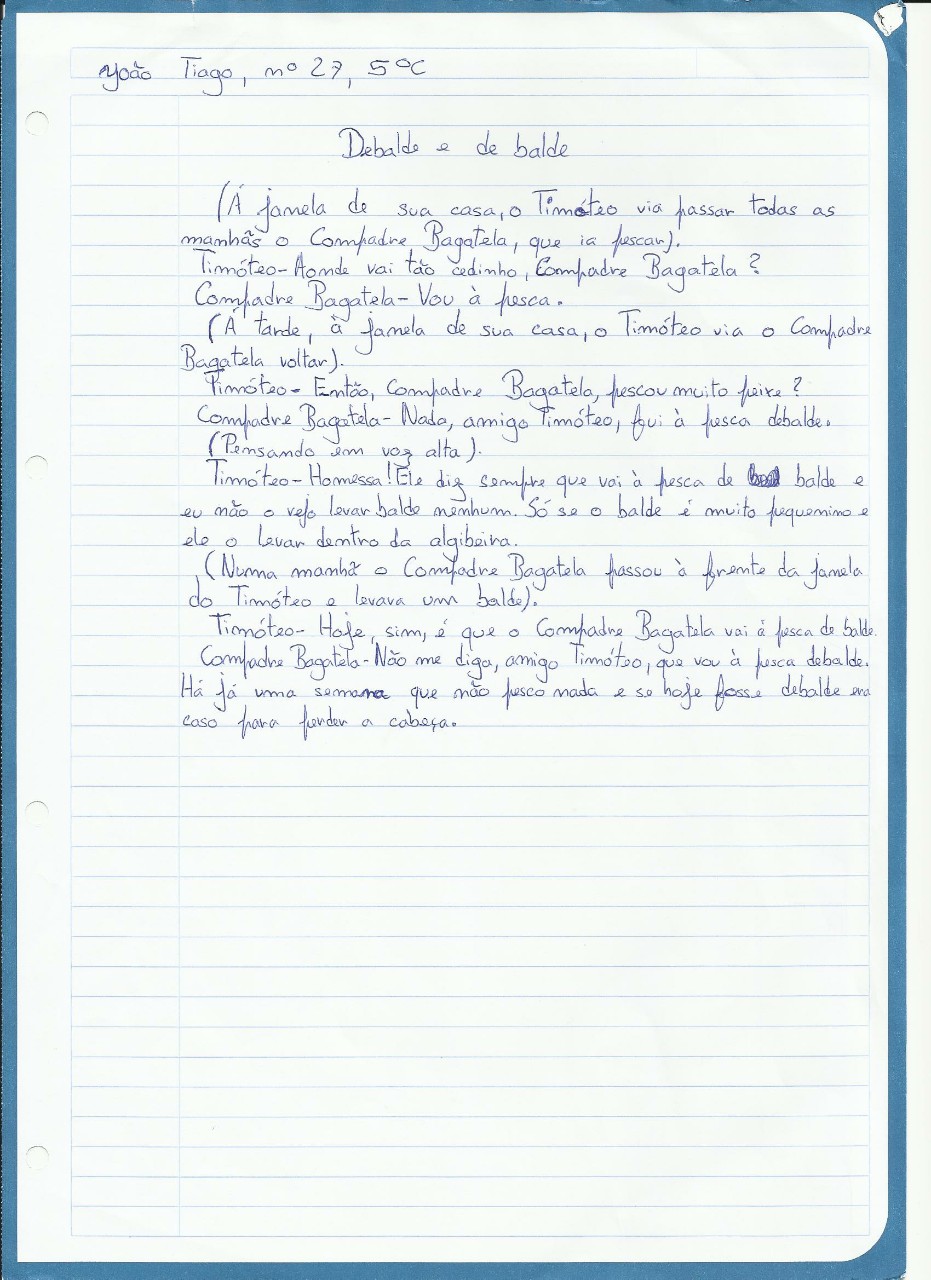 João Tiago, nº 27, 5ºC
Debalde e de balde
(Á janela de sua casa, o Timóteo via passar todas as
manhãs o Compadre Bagatela, que ia pescar).
Timóteo- Aonde vai tão cedinho, Compadre Bagatela?
Compadre Bagatela- Vou à pesca.
(Á tarde, à janela de sua casa, o Timóteo via o Compadre
Bagatela voltar).
Timóteo- Então, Compadre Bagatela, pescou muito peixe?
Compadre Bagatela- Nada, amigo Timóteo, fui à pesca debalde.
(Pensando em voz alta).
Timóteo- Homessa! Ele diz sempre que vai à pesca de balde e
eu não o vejo levar balde nenhum. Só se o balde é muito pequenino e
ele o levar dentro da algibeira.
(Numa manhã o Compadre Bagatela passou à frente da janela
do Timóteo e levava um balde).
Timóteo- Hoje, sim, é que o Compadre Bagatela vai à pesca de balde.
Compadre Bagatela- Não me diga, amigo Timóteo, que vou à pesca debalde.
Há já uma semana que não pesco nada e se hoje fosse debalde era
caso para perder a cabeça.